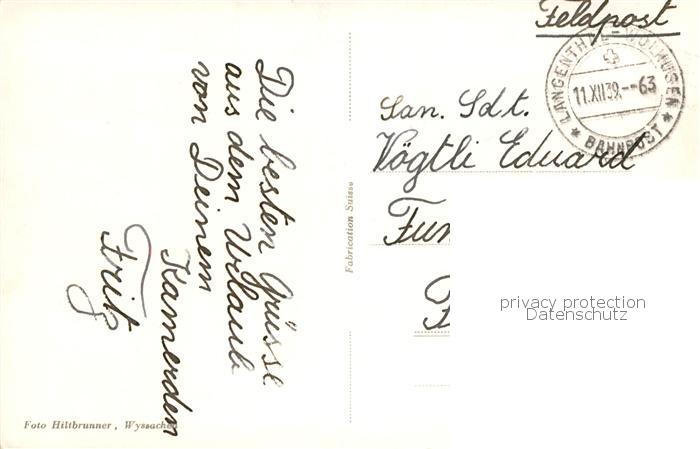 Feldpost
LANGENTHAL - WOLHUSEN
11.XII 39.--63
* BAHNPOST *
San. Sdt.
Vögtli Eduard
Fun
privacy protection
Datenschutz
Die besten Grüsse
aus dem Urlaub
von Deinem
Kamerden
Fritz
Fabrication Suisse
Foto Hiltbrunner, Wyssachen